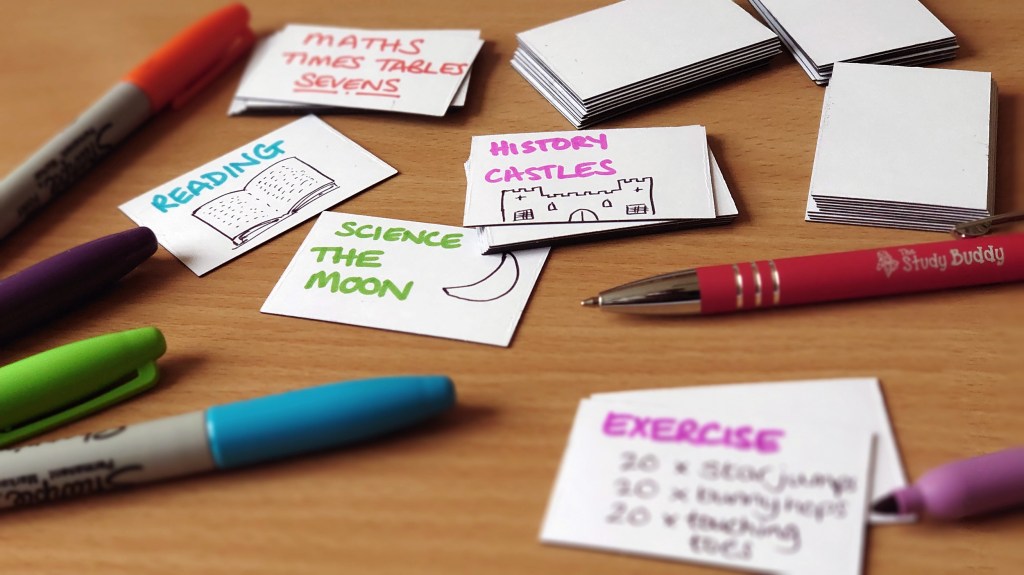 MATHS
TIMES TABLES
SEVENS
READING
HISTORY
CASTLES
SCIENCE
THE
MOON
The
Study Buddy
EXERCISE
20 x star jumps
20 x bunny hops
20 x touching
toes
Sharpie
Permanent Marker